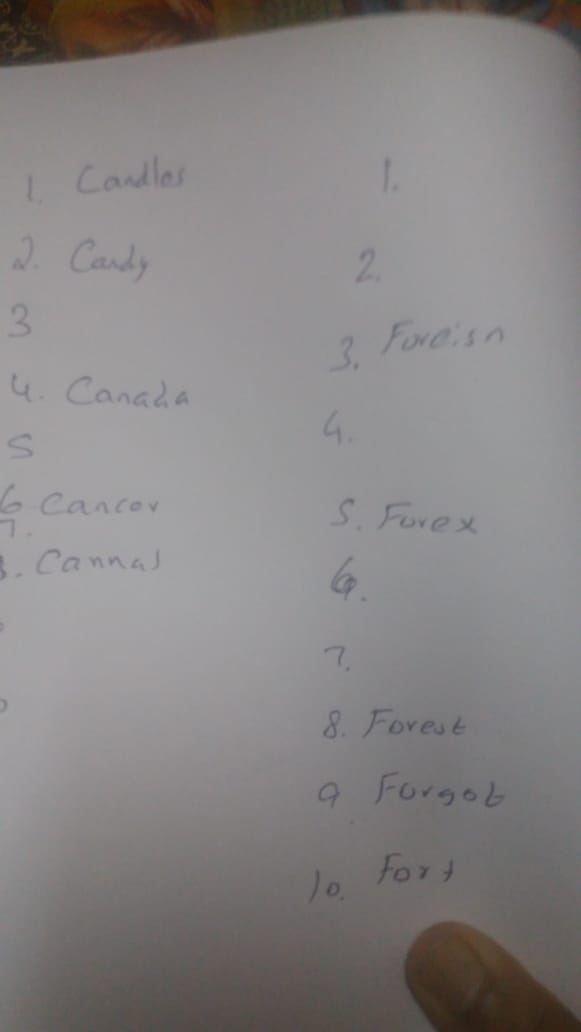 1. Candles
2. Candy
3
4. Canada
5
6 Cancer
7.
8. Cannal
1.
2.
3. Foreign
4.
5. Forex
6.
7.
8. Forest
9 Forgot
10. Fort